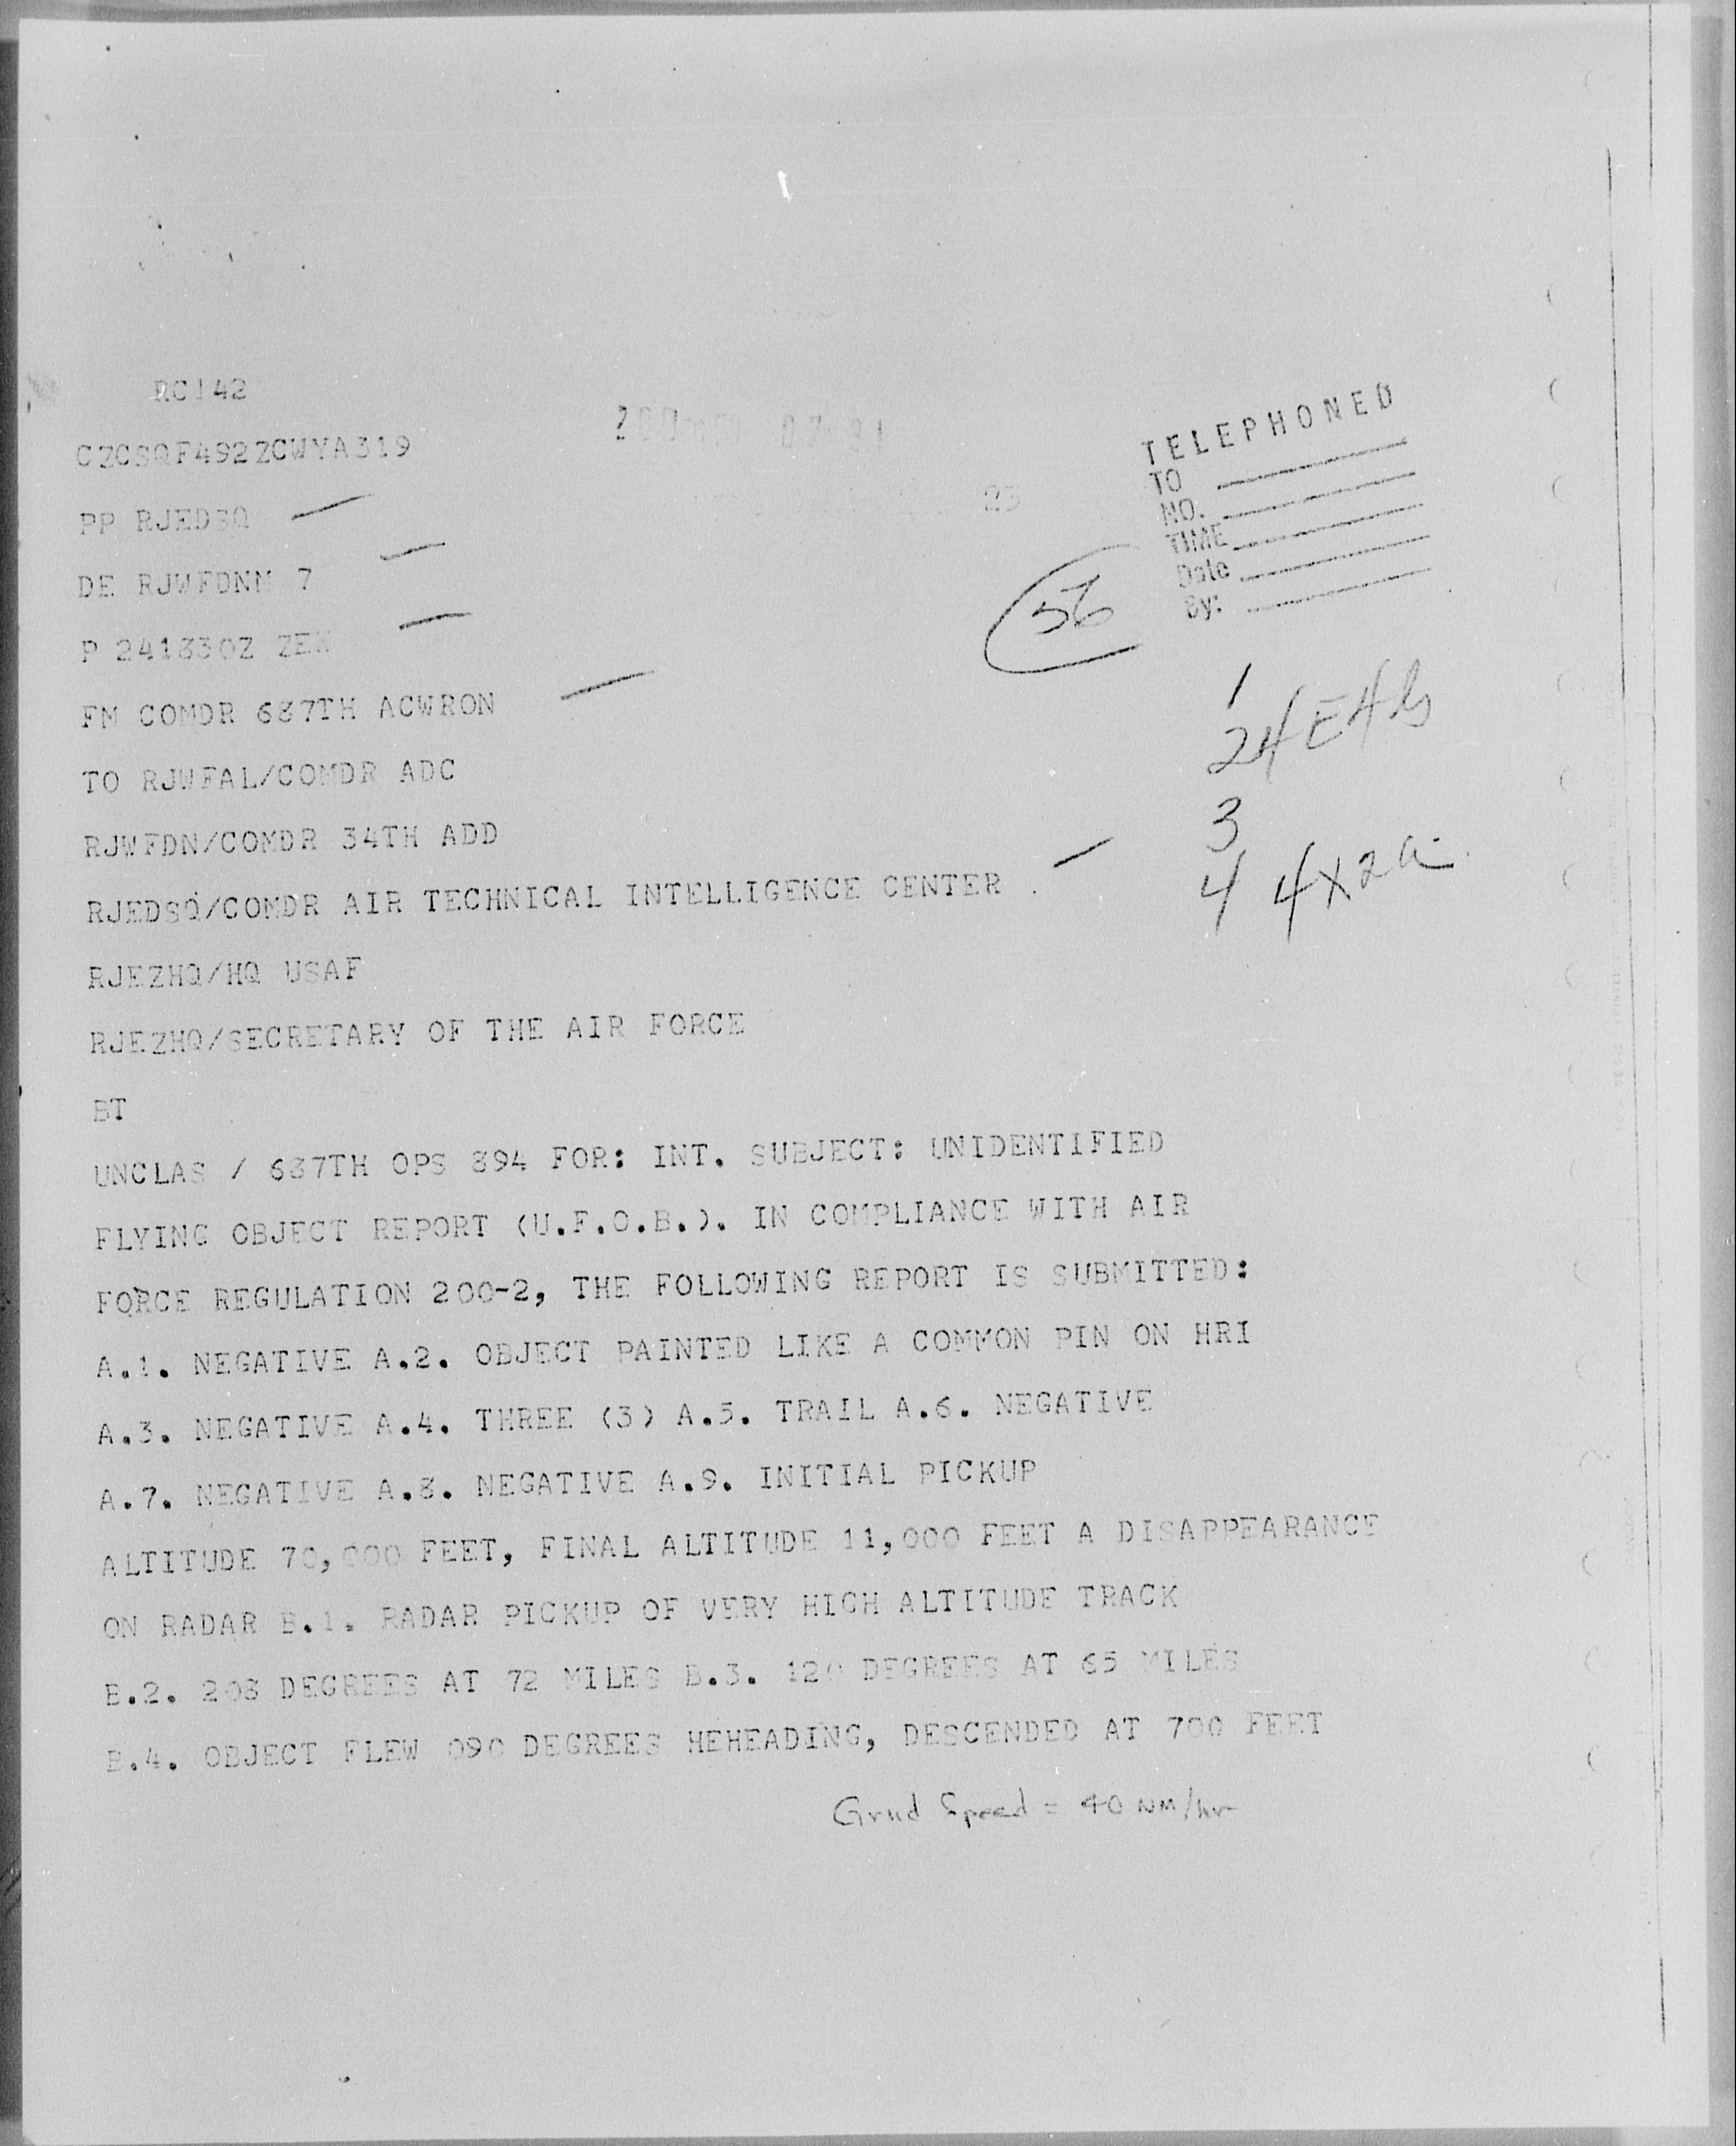 RC142
CZCSQF492ZCWYA319
PP RJEDSQ
DE RJWFDNM 7
P 241830Z ZEX
FM COMDR 687TH ACWRON
TO RJWFAL/COMDR ADC
RJWFDN/COMDR 34TH ADD
RJEDSQ/COMDR AIR TECHNICAL INTELLIGENCE CENTER
RJEZHQ/HQ USAF
RJEZHQ/SECRETARY OF THE AIR FORCE
BT
UNCLAS / 687TH OPS 894 FOR: INT. SUBJECT: UNIDENTIFIED
FLYING OBJECT REPORT (U.F.O.B.). IN COMPLIANCE WITH AIR
FORCE REGULATION 200-2, THE FOLLOWING REPORT IS SUBMITTED:
A.1. NEGATIVE A.2. OBJECT PAINTED LIKE A COMMON PIN ON HRI
A.3. NEGATIVE A.4. THREE (3) A.5. TRAIL A.6. NEGATIVE
A.7. NEGATIVE A.8. NEGATIVE A.9. INITIAL PICKUP
ALTITUDE 70,000 FEET, FINAL ALTITUDE 11,000 FEET A DISAPPEARANCE
ON RADAR B.1. RADAR PICKUP OF VERY HIGH ALTITUDE TRACK
B.2. 208 DEGREES AT 72 MILES B.3. 120 DEGREES AT 65 MILES
B.4. OBJECT FLEW 090 DEGREES HEHEADING, DESCENDED AT 700 FEET
Grnd Speed = 40 NM/hr
23
TELEPHONED
TO
NO.
TIME
Date
By:
56
1
24 E4
3
4 4X2a